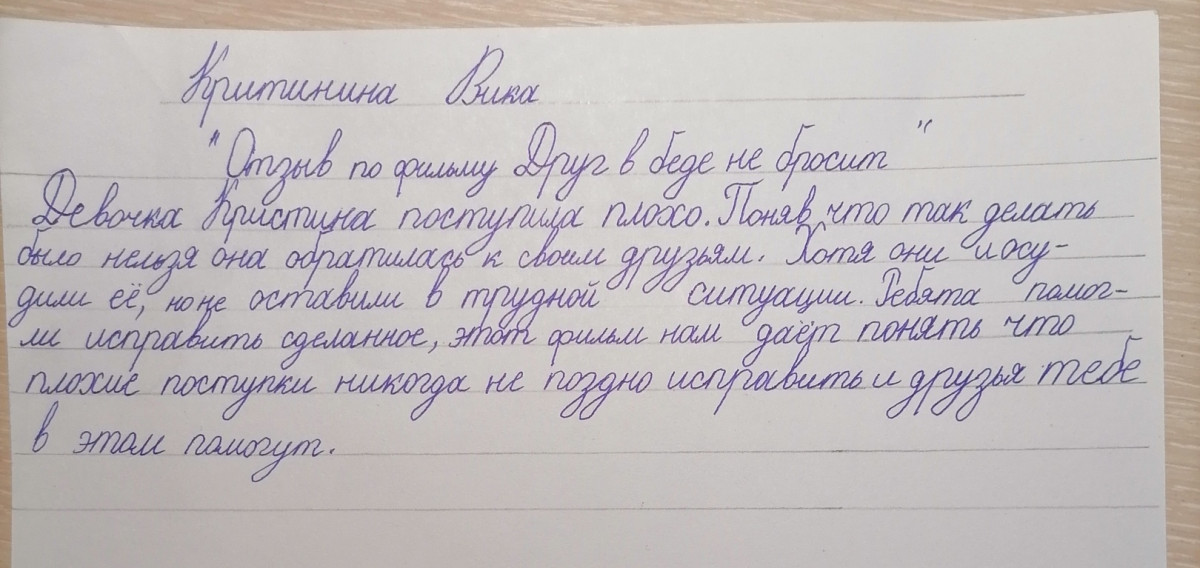 Критинина Вика
"Отзыв по фильму Друг в беде не бросит"
Девочка Кристина поступила плохо. Поняв, что так делать
было нельзя она обратилась к своим друзьям. Хотя они и осу-
дили её, но не оставили в трудной ситуации. Ребята помог-
ли исправить сделанное, этот фильм нам даёт понять что
плохие поступки никогда не поздно исправить и друзья тебе
в этом помогут.